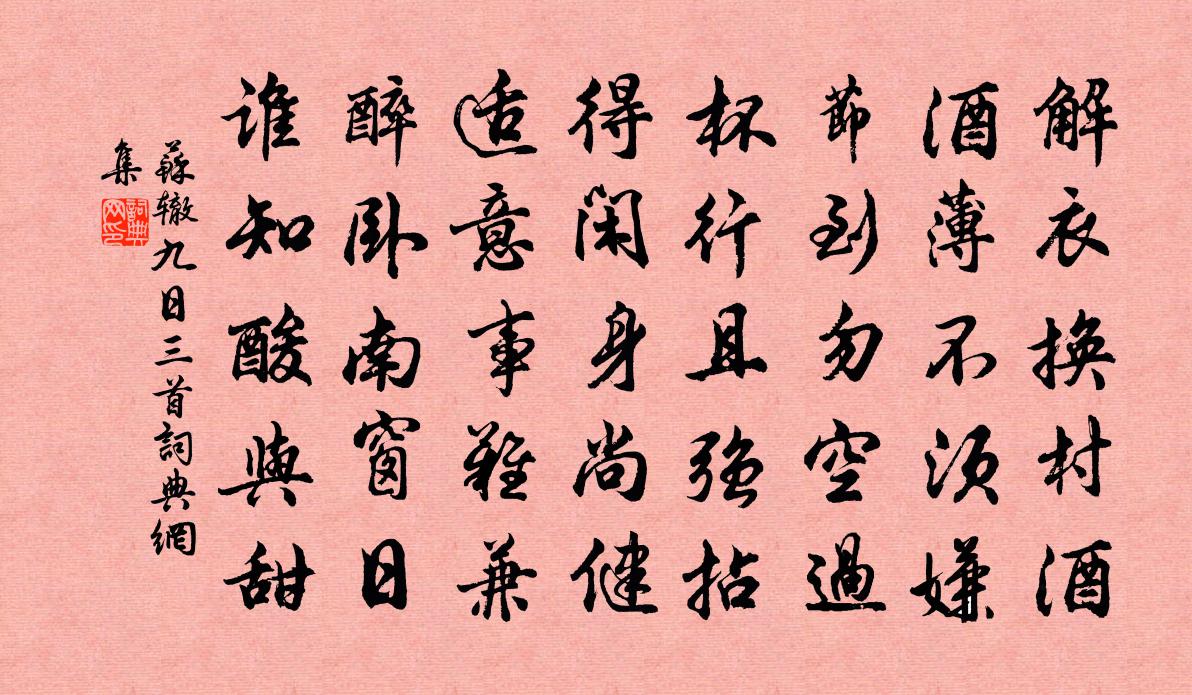 解衣換村酒
酒薄不須嫌
節到勿空過
杯行且強拈
得閑身尚健
适意事難兼
醉臥南窗日
誰知酸與甜
蘇辙九日三首詞典網
集
詞典
网印